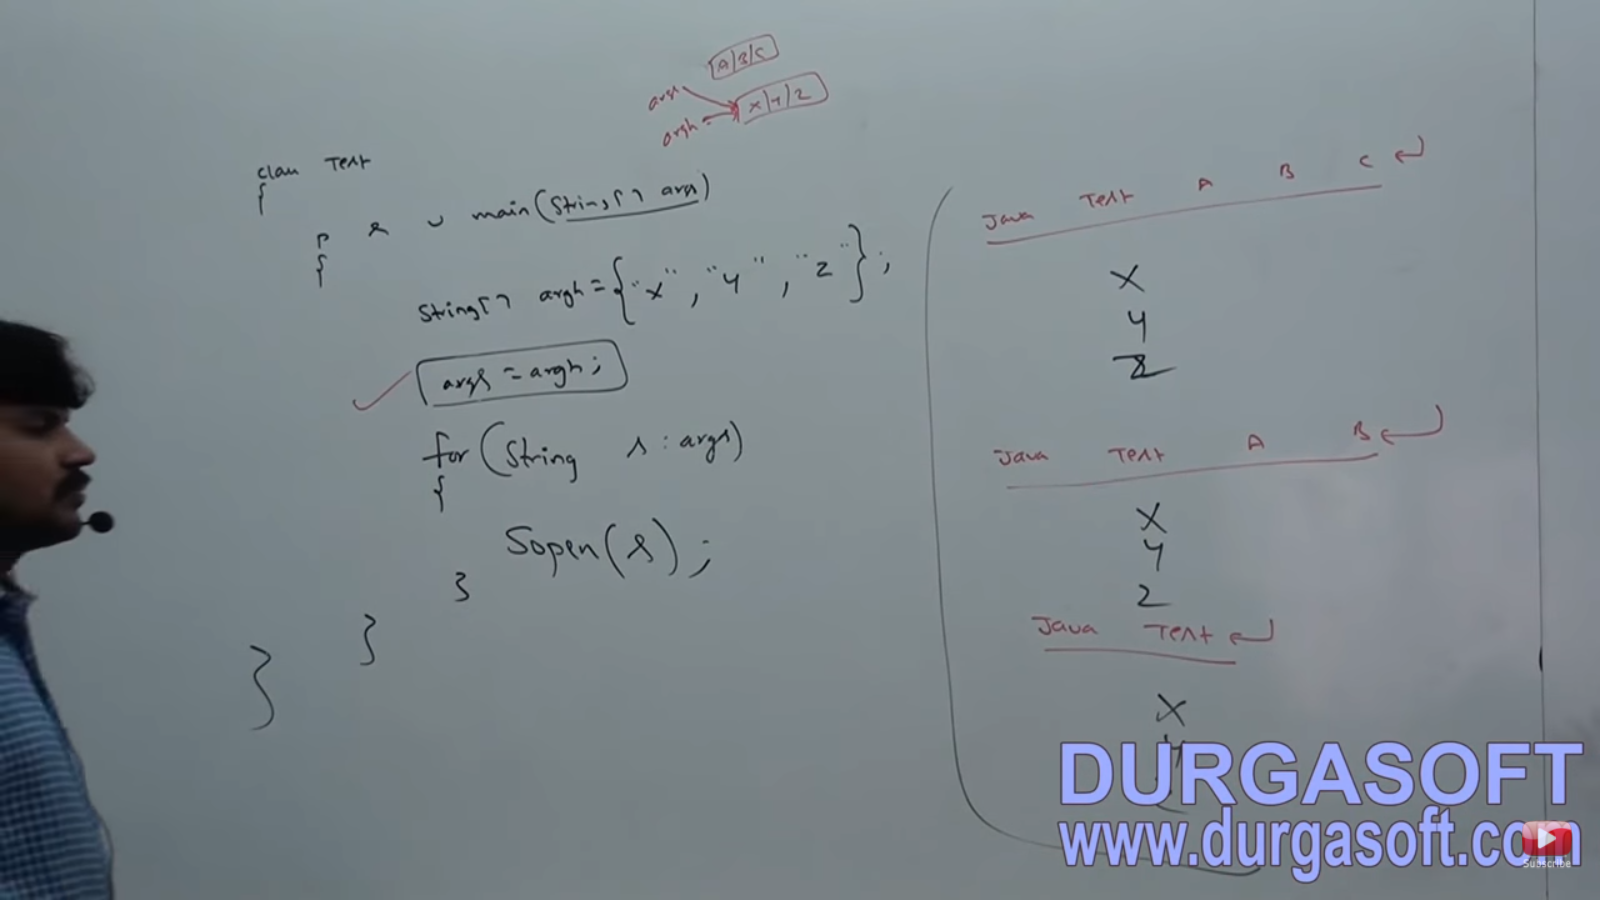 A|B|C
args
x|y|z
argh
class Test
{
p s v main(String[] args)
{
String[] argh = {"x", "y", "z"};
args = argh;
for (String s : args)
{
Sopln(s);
}
}
}
Java Test A B C ↵
X
Y
Z
Java Test A B ↵
X
Y
Z
Java Test ↵
X
Y
DURGASOFT
www.durgasoft.com
Subscribe